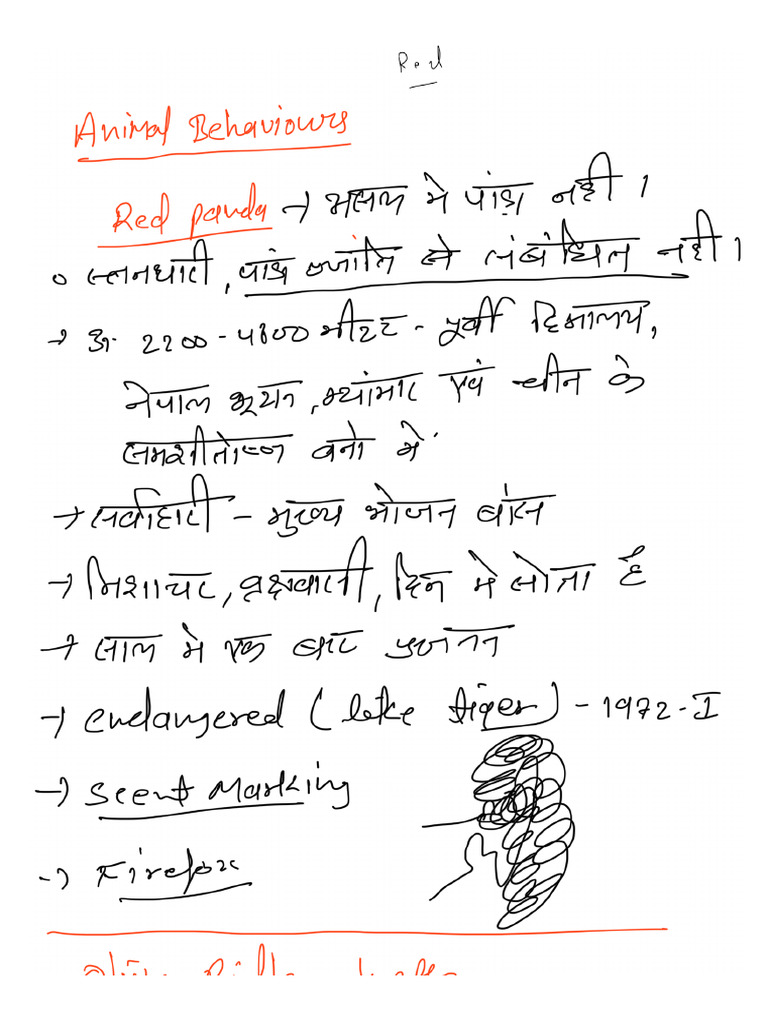 Red
Animal Behaviours
Red panda → असल में पांडा नही ।
० स्तनधारी, पांडा प्रजाति से संबंधित नही ।
→ 2200 - 4800 मीटर - पूर्वी हिमालय,
नेपाल भूटान, म्यांमार एवं चीन के
समशीतोष्ण वनो में
→ सर्वाहारी - मुख्य भोजन बांस
→ निशाचर, वृक्षवासी, दिन मे सोता है
→ साल मे एक बार प्रजनन
→ endangered (like tiger) - 1972 - I
→ Scent Marking
→ Firefox